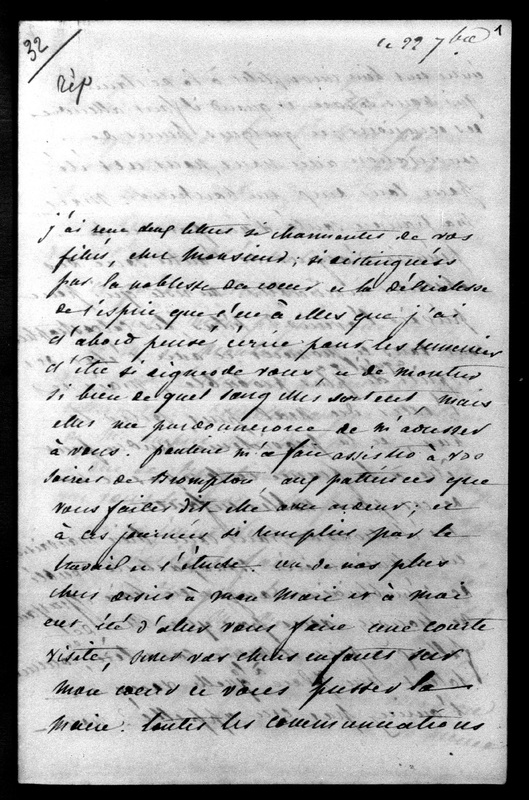 32
le 22 7bre
1
rép
j'ai reçu deux lettres si charmantes de vos
filles, cher Monsieur, si distinguées
par la noblesse du coeur et la délicatesse
de l'esprit que c'est à elles que j'ai
d'abord pensé écrire pour les remercier
d'être si dignes de vous, et de montrer
si bien de quel sang elles sortent mais
elles me pardonneront de m'adresser
à vous. pauline m'a fait assister à vos
soirées de Brompton aux patiences que
vous faites dit elle avec ardeur; et
à ces journées si remplies par le
travail et l'étude. un de nos plus
chers désirs à mon Mari et à moi
eut été d'aller vous faire une courte
visite, serrer vos chers enfants sur
mon coeur et vous presser la
main. toutes les communications